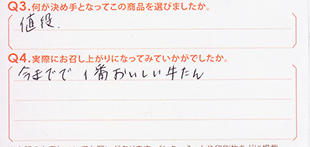 Q3.何が決め手となってこの商品を選びましたか。
値段.
Q4.実際にお召し上がりになってみていかがでしたか。
今までで1番おいしい牛たん